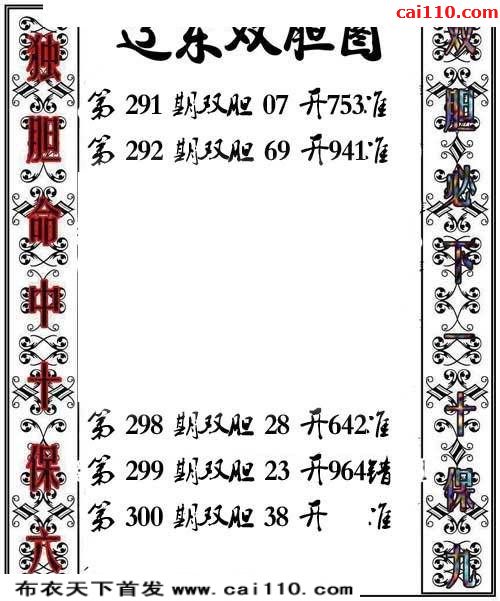 cai110.com
辽东双胆图
独胆命中十保六
第 291 期双胆 07 开753准
第 292 期双胆 69 开941准
第 298 期双胆 28 开642准
第 299 期双胆 23 开964错
第 300 期双胆 38 开 准
双胆必下一十保九
布衣天下首发 www.cai110.com